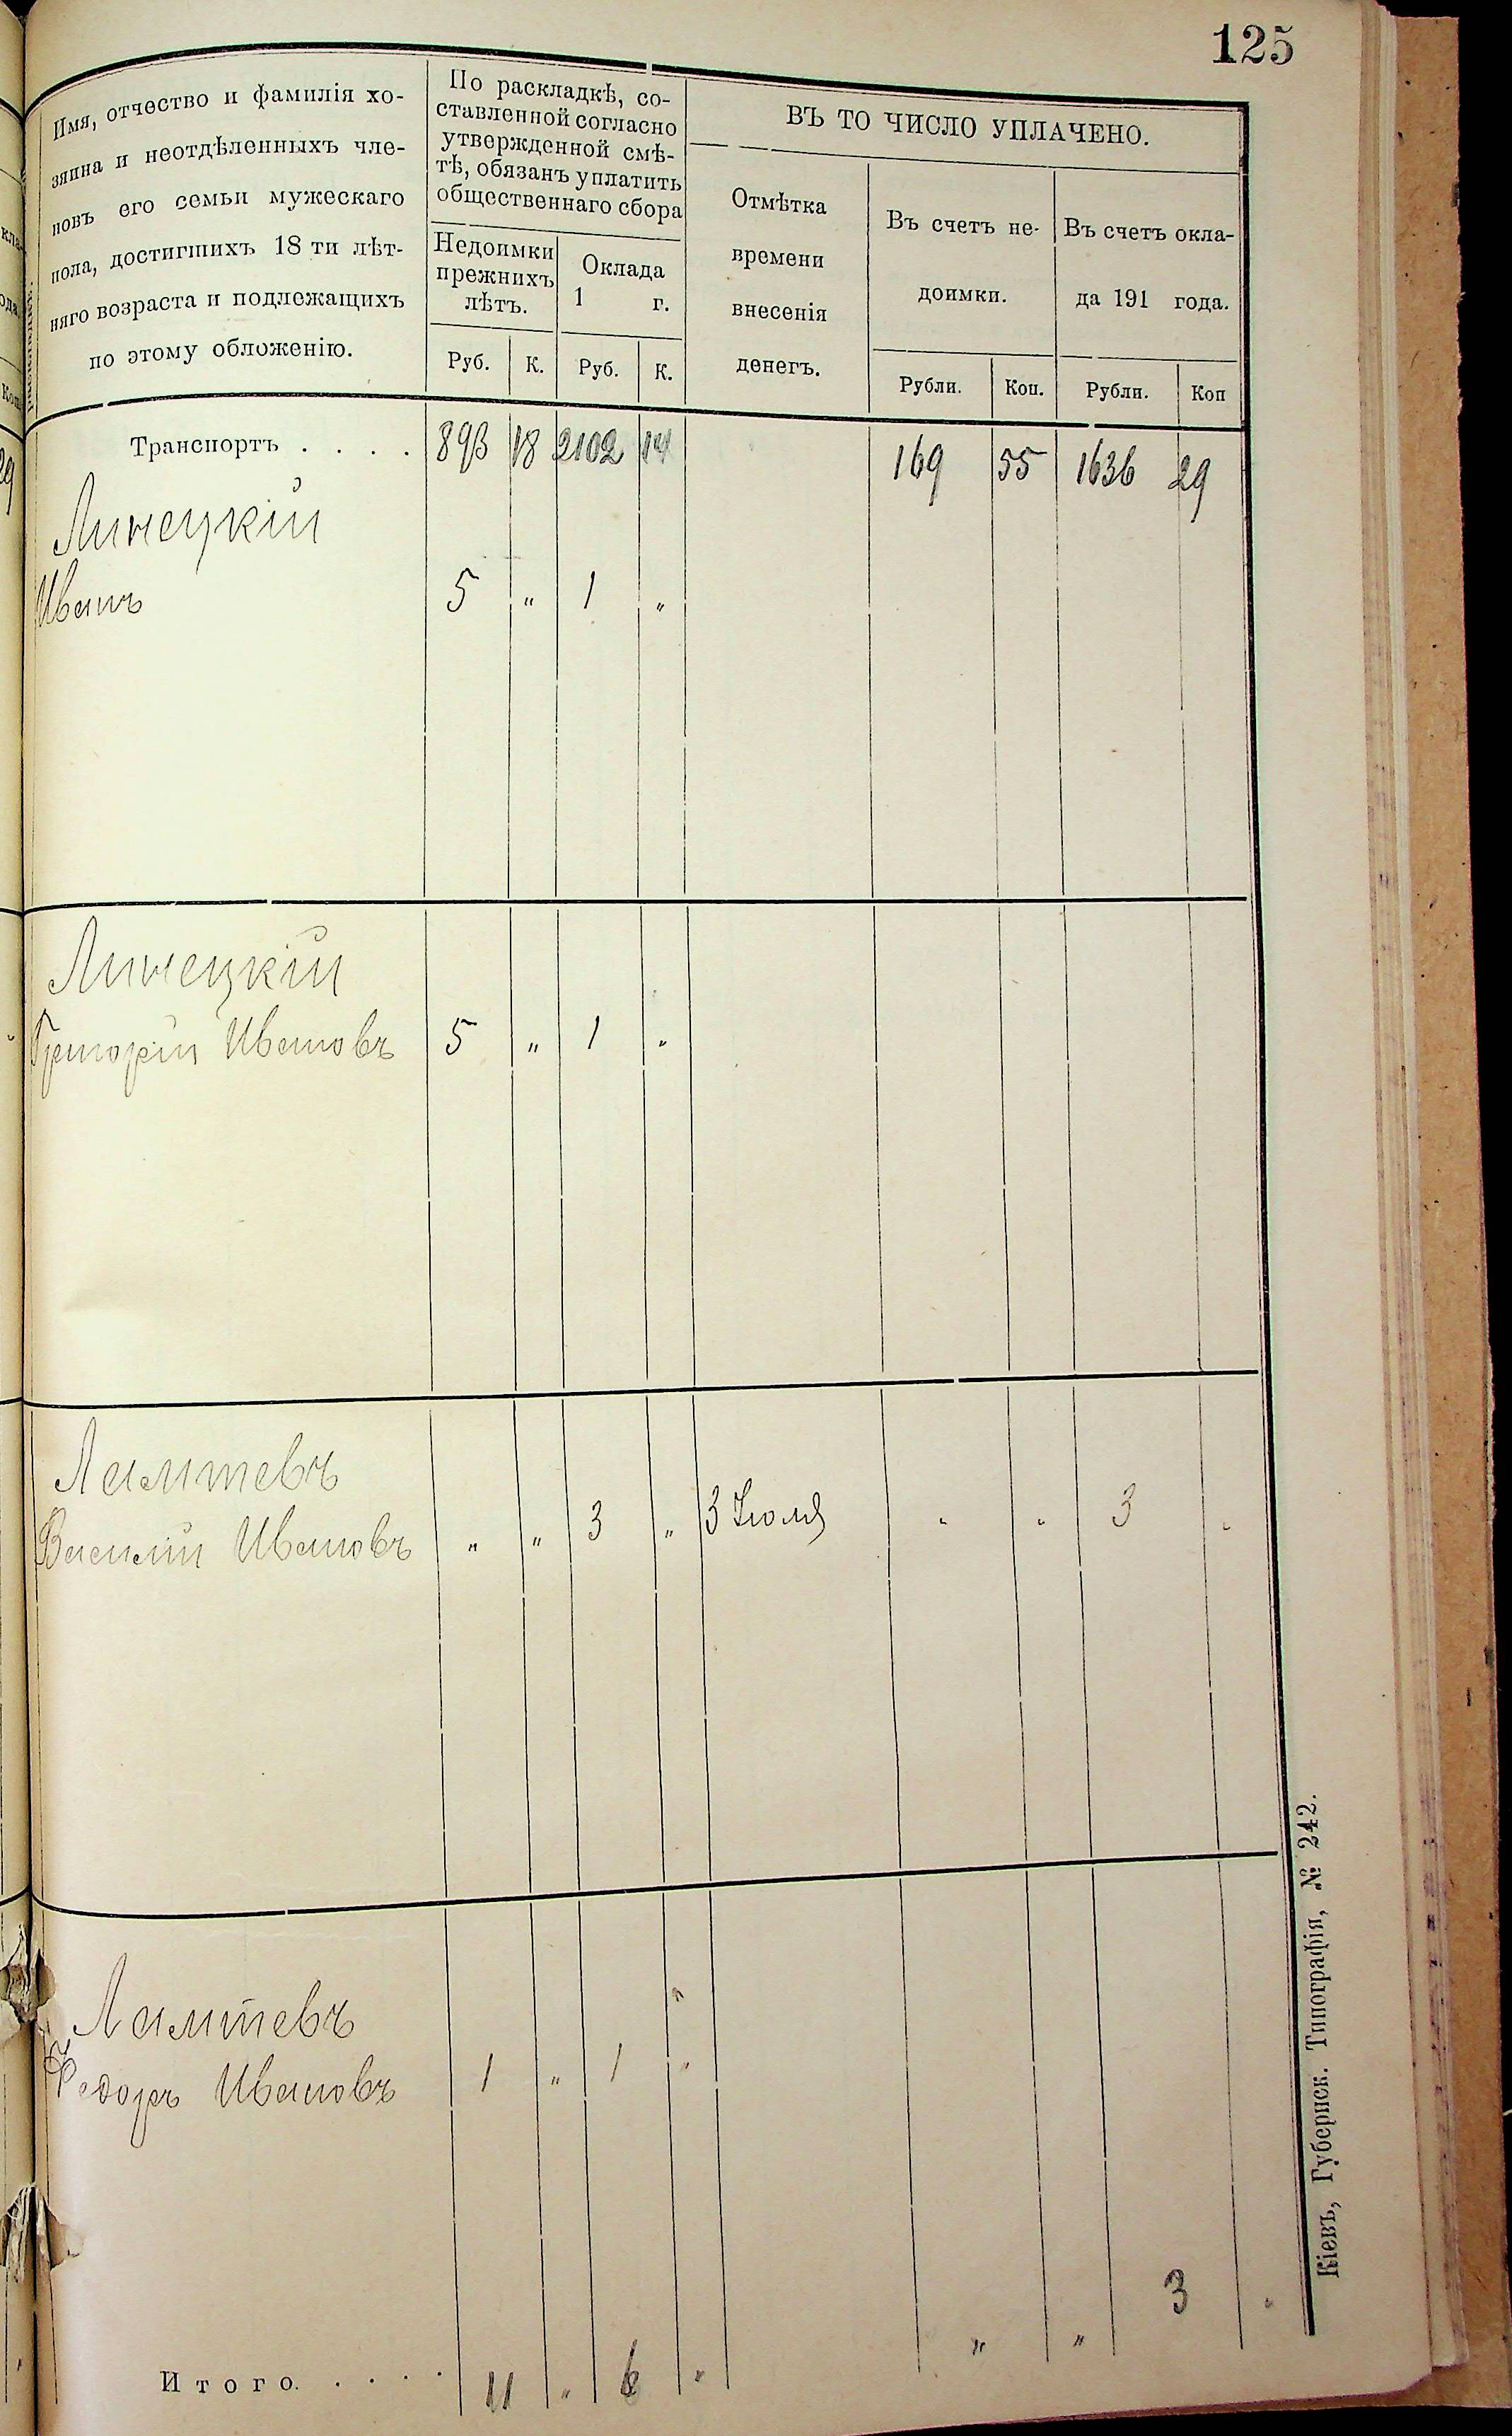 125
Имя, отчество и фамилія хо-
зяина и неотдѣленныхъ чле-
новъ его семьи мужескаго
пола, достигшихъ 18 ти лѣт-
няго возраста и подлежащихъ
по этому обложенію.
По раскладкѣ, со-
ставленной согласно
утвержденной смѣ-
тѣ, обязанъ уплатить
общественнаго сбора
Недоимки
прежнихъ
лѣтъ.
Оклада
1 г.
Руб. К. Руб. К.
ВЪ ТО ЧИСЛО УПЛАЧЕНО.
Отмѣтка
времени
внесенія
денегъ.
Въ счетъ не-
доимки.
Въ счетъ окла-
да 191 года.
Рубли. Коп. Рубли. Коп
Транспортъ . . . . 893 18 2102 14 169 55 1636 29
Линецкій
Иванъ 5 " 1 "
Линецкій
Григорій Ивановъ 5 " 1 "
Лаптевъ
Василій Ивановъ " " 3 " 3 Іюля " " 3 "
Лаптевъ
Федоръ Ивановъ 1 " 1 "
Итого. . . . . 11 " 6 " " " 3 "
Кіевъ, Губернск. Типографія, № 242.